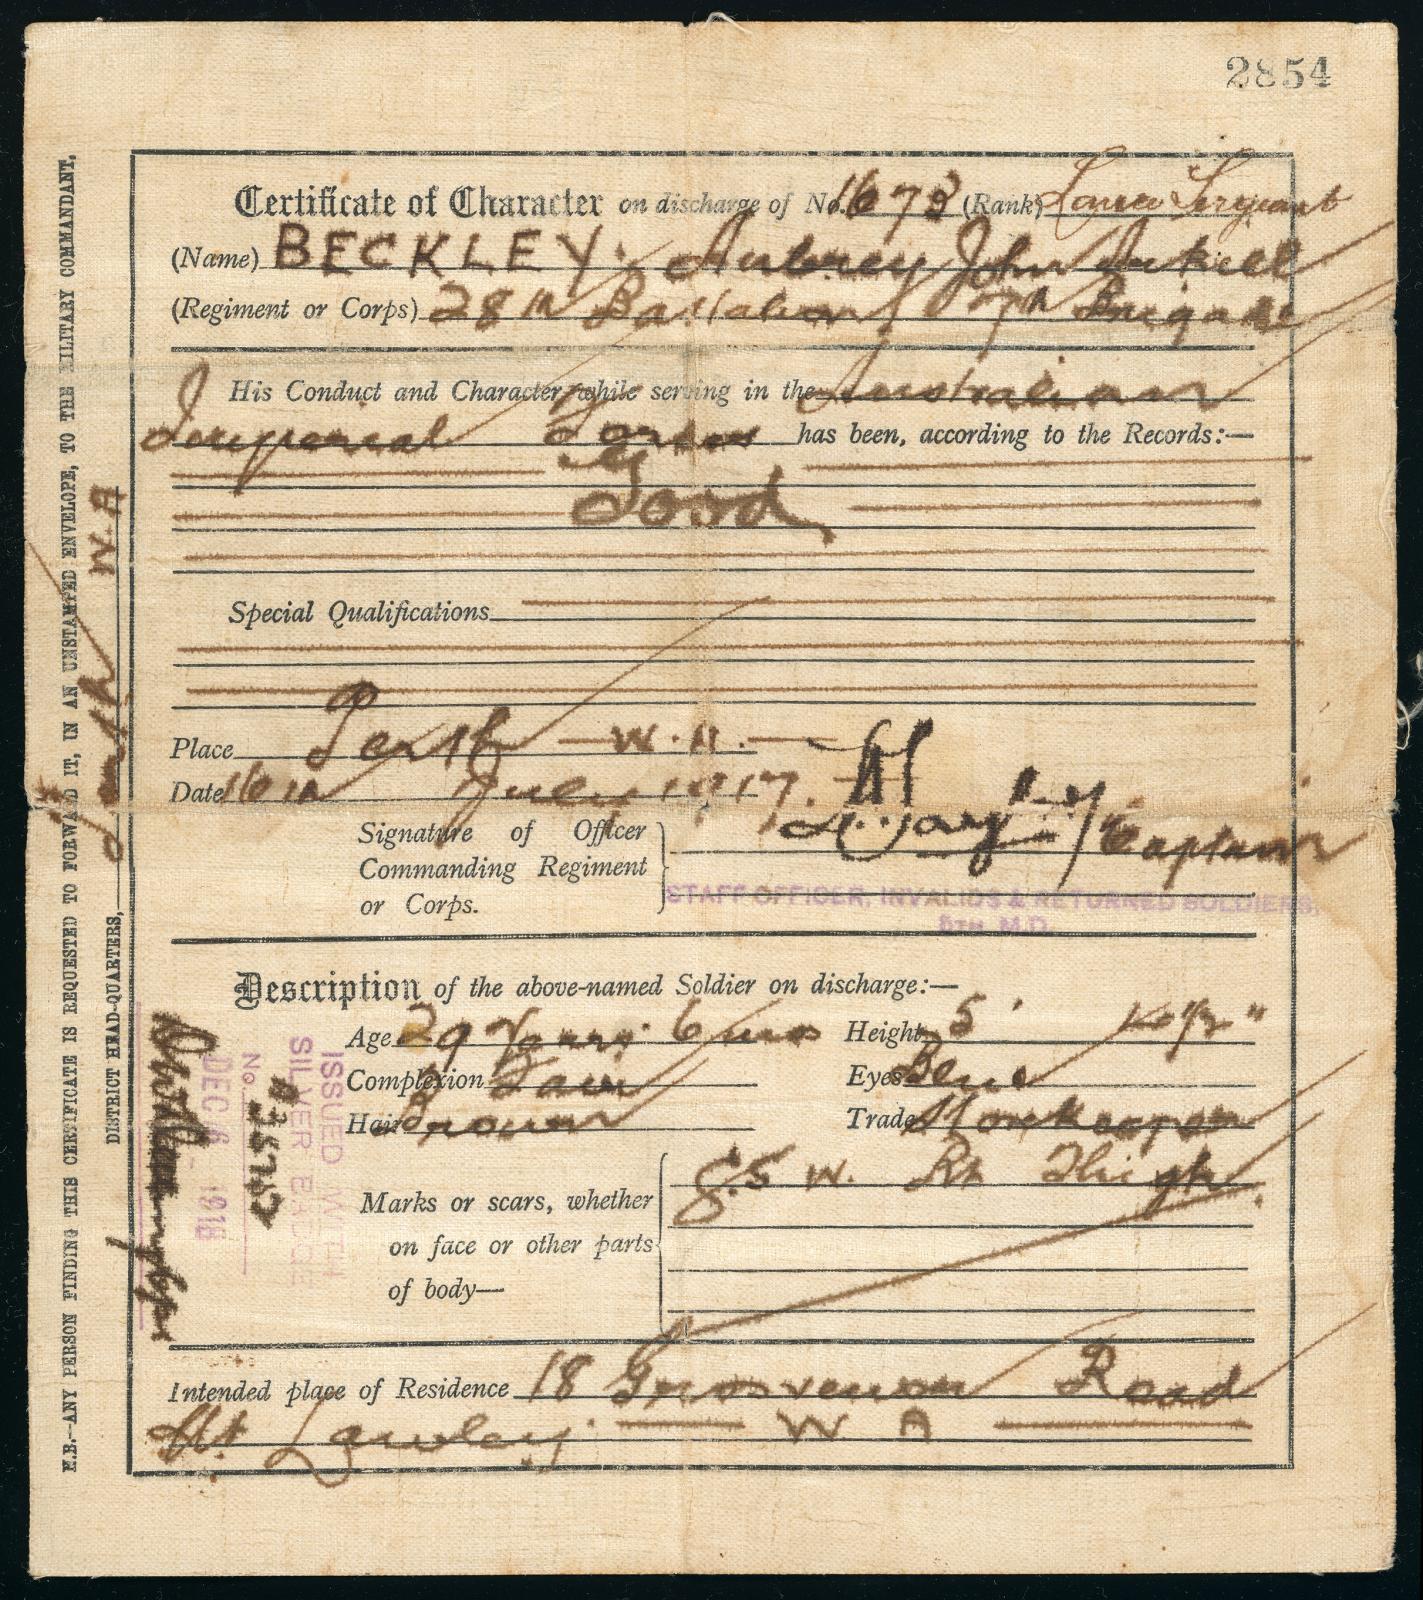 2854
Certificate of Character on discharge of No. 1673 (Rank) Lance Sergeant
(Name) BECKLEY. Aubrey John
(Regiment or Corps) 28th Battalion 7th Brigade
His Conduct and Character while serving in the Australian
Imperial Forces has been, according to the Records:—
Good
Special Qualifications
Place Perth — W.A. —
Date 16th July 1917.
Signature of Officer
Commanding Regiment
or Corps.
Captain
STAFF OFFICER, INVALIDS & RETURNED SOLDIERS,
5TH M.D.
Description of the above-named Soldier on discharge:—
Age 29 Years 6 mos Height 5'
Complexion Fair Eyes Blue
Hair Brown Trade Storekeeper
Marks or scars, whether
on face or other parts
of body—
G.S W. Rt Thigh
Intended place of Residence 18 Grosvenor Road
Mt Lawley. W A
N.B.—ANY PERSON FINDING THIS CERTIFICATE IS REQUESTED TO FORWARD IT, IN AN UNSTAMPED ENVELOPE, TO THE MILITARY COMMANDANT,
DISTRICT HEAD-QUARTERS, Perth W.A
ISSUED WITH
SILVER BADGE
No
DEC 6 - 1918